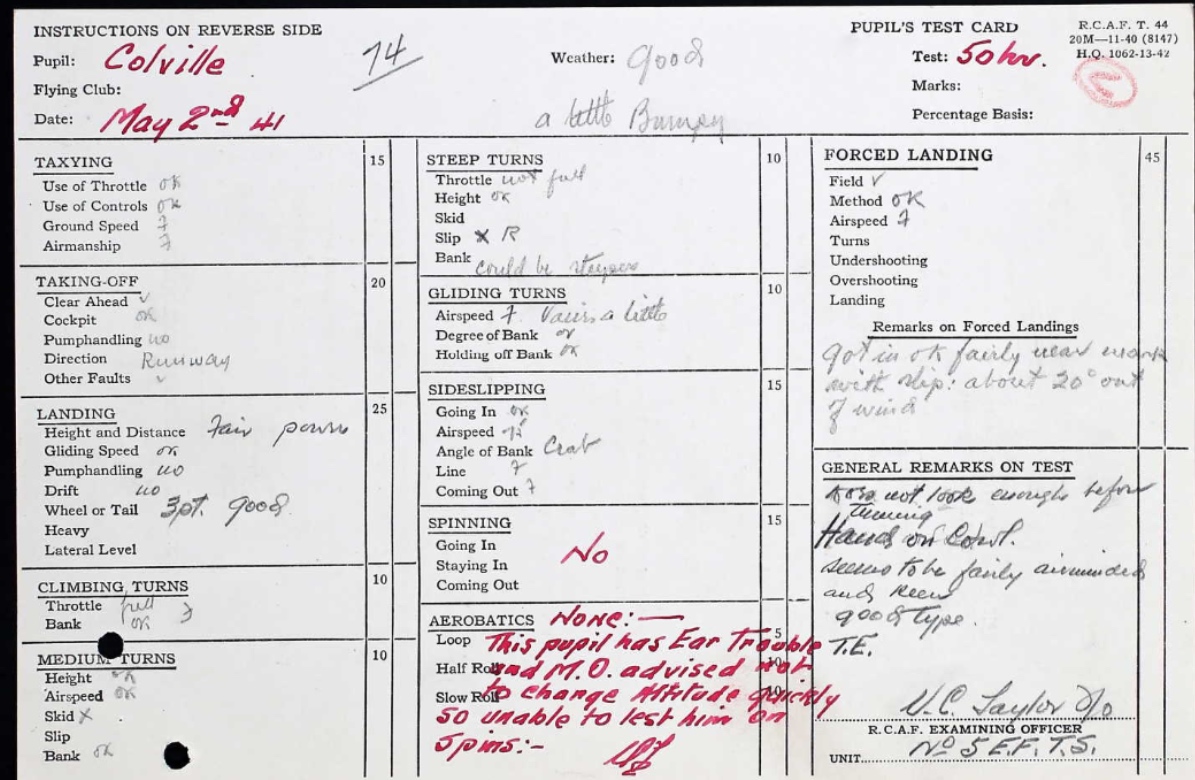 INSTRUCTIONS ON REVERSE SIDE
PUPIL'S TEST CARD
R.C.A.F. T. 44
20M—11-40 (8147)
H.Q. 1062-13-42
Pupil: Colville
74
Weather: good
a little Bumpy
Test: 50 hr.
Flying Club:
Marks:
Date: May 2nd 41
Percentage Basis:
TAXYING 15
Use of Throttle OK
Use of Controls OK
Ground Speed F
Airmanship F
TAKING-OFF 20
Clear Ahead ✓
Cockpit OK
Pumphandling no
Direction Runway
Other Faults ✓
LANDING 25
Height and Distance Fair
Gliding Speed OK
Pumphandling no
Drift no
Wheel or Tail 3pt. good
Heavy
Lateral Level
CLIMBING TURNS 10
Throttle full F
Bank OK
MEDIUM TURNS 10
Height OK
Airspeed OK
Skid X
Slip
Bank OK
STEEP TURNS 10
Throttle not full
Height OK
Skid
Slip X R
Bank
could be steeper
GLIDING TURNS 10
Airspeed F Varies a little
Degree of Bank OK
Holding off Bank OK
SIDESLIPPING 15
Going In OK
Airspeed
Angle of Bank Crab
Line F
Coming Out F
SPINNING 15
Going In
Staying In No
Coming Out
AEROBATICS None:—
Loop 5
This pupil has Ear Trouble
Half Roll 10
and M.O. advised not
Slow Roll 10
to change Attitude quickly
so unable to test him on
spins:-
FORCED LANDING 45
Field ✓
Method OK
Airspeed F
Turns
Undershooting
Overshooting
Landing
Remarks on Forced Landings
Got in ok fairly near mark
with slip: about 20° out
of wind
GENERAL REMARKS ON TEST
Does not look enough before
turning
Hands on Cowl.
seems to be fairly airminded
and keen
good type.
T.E.
Taylor F/O
R.C.A.F. EXAMINING OFFICER
UNIT No 5 E.F.T.S.